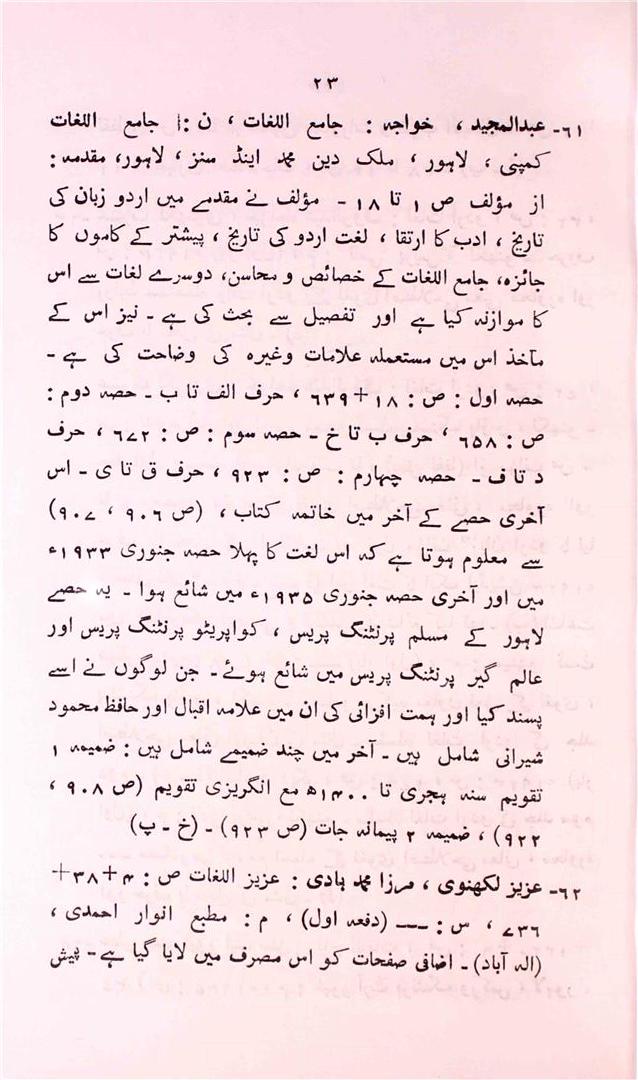 ۲۳
۶۱- عبدالمجید ، خواجہ : جامع اللغات ، ن : جامع اللغات
کمپنی ، لاہور ، ملک دین محمد اینڈ سنز ، لاہور، مقدمہ :
از مؤلف ص ۱ تا ۱۸ - مؤلف نے مقدمے میں اردو زبان کی
تاریخ ، ادب کا ارتقا ، لغت اردو کی تاریخ ، پیشتر کے کاموں کا
جائزہ، جامع اللغات کے خصائص و محاسن، دوسرے لغات سے اس
کا موازنہ کیا ہے اور تفصیل سے بحث کی ہے - نیز اس کے
مآخذ اس میں مستعملہ علامات وغیرہ کی وضاحت کی ہے -
حصہ اول : ص : ۱۸+۶۳۹ ، حرف الف تا ب - حصہ دوم :
ص : ۶۵۸ ، حرف ب تا خ - حصہ سوم : ص : ۶۷۲ ، حرف
د تا ف - حصہ چہارم : ص : ۹۲۳ ، حرف ق تا ی - اس
آخری حصے کے آخر میں خاتمہ کتاب ، (ص ۹۰۶ ، ۹۰۷)
سے معلوم ہوتا ہے کہ اس لغت کا پہلا حصہ جنوری ۱۹۳۳ء
میں اور آخری حصہ جنوری ۱۹۳۵ء میں شائع ہوا - یہ حصے
لاہور کے مسلم پرنٹنگ پریس ، کواپریٹو پرنٹنگ پریس اور
عالم گیر پرنٹنگ پریس میں شائع ہوئے - جن لوگوں نے اسے
پسند کیا اور ہمت افزائی کی ان میں علامہ اقبال اور حافظ محمود
شیرانی شامل ہیں - آخر میں چند ضمیمے شامل ہیں : ضمیمہ ۱
تقویم سنہ ہجری تا ۱۴۰۰ھ مع انگریزی تقویم (ص ۹۰۸ ،
۹۲۲) ، ضمیمہ ۲ پیمانہ جات (ص ۹۲۳) - (خ - پ)
۶۲- عزیز لکھنوی ، مرزا محمد ہادی : عزیز اللغات ص : ۴+۳۸+
۷۳۶ ، س : --- (دفعہ اول) ، م : مطبع انوار احمدی ،
(الہ آباد) - اضافی صفحات کو اس مصرف میں لایا گیا ہے - پیش